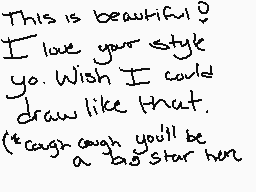 This is beautiful!
I love your style
yo. Wish I could
draw like that.
(*cough cough you'll be
a big star here